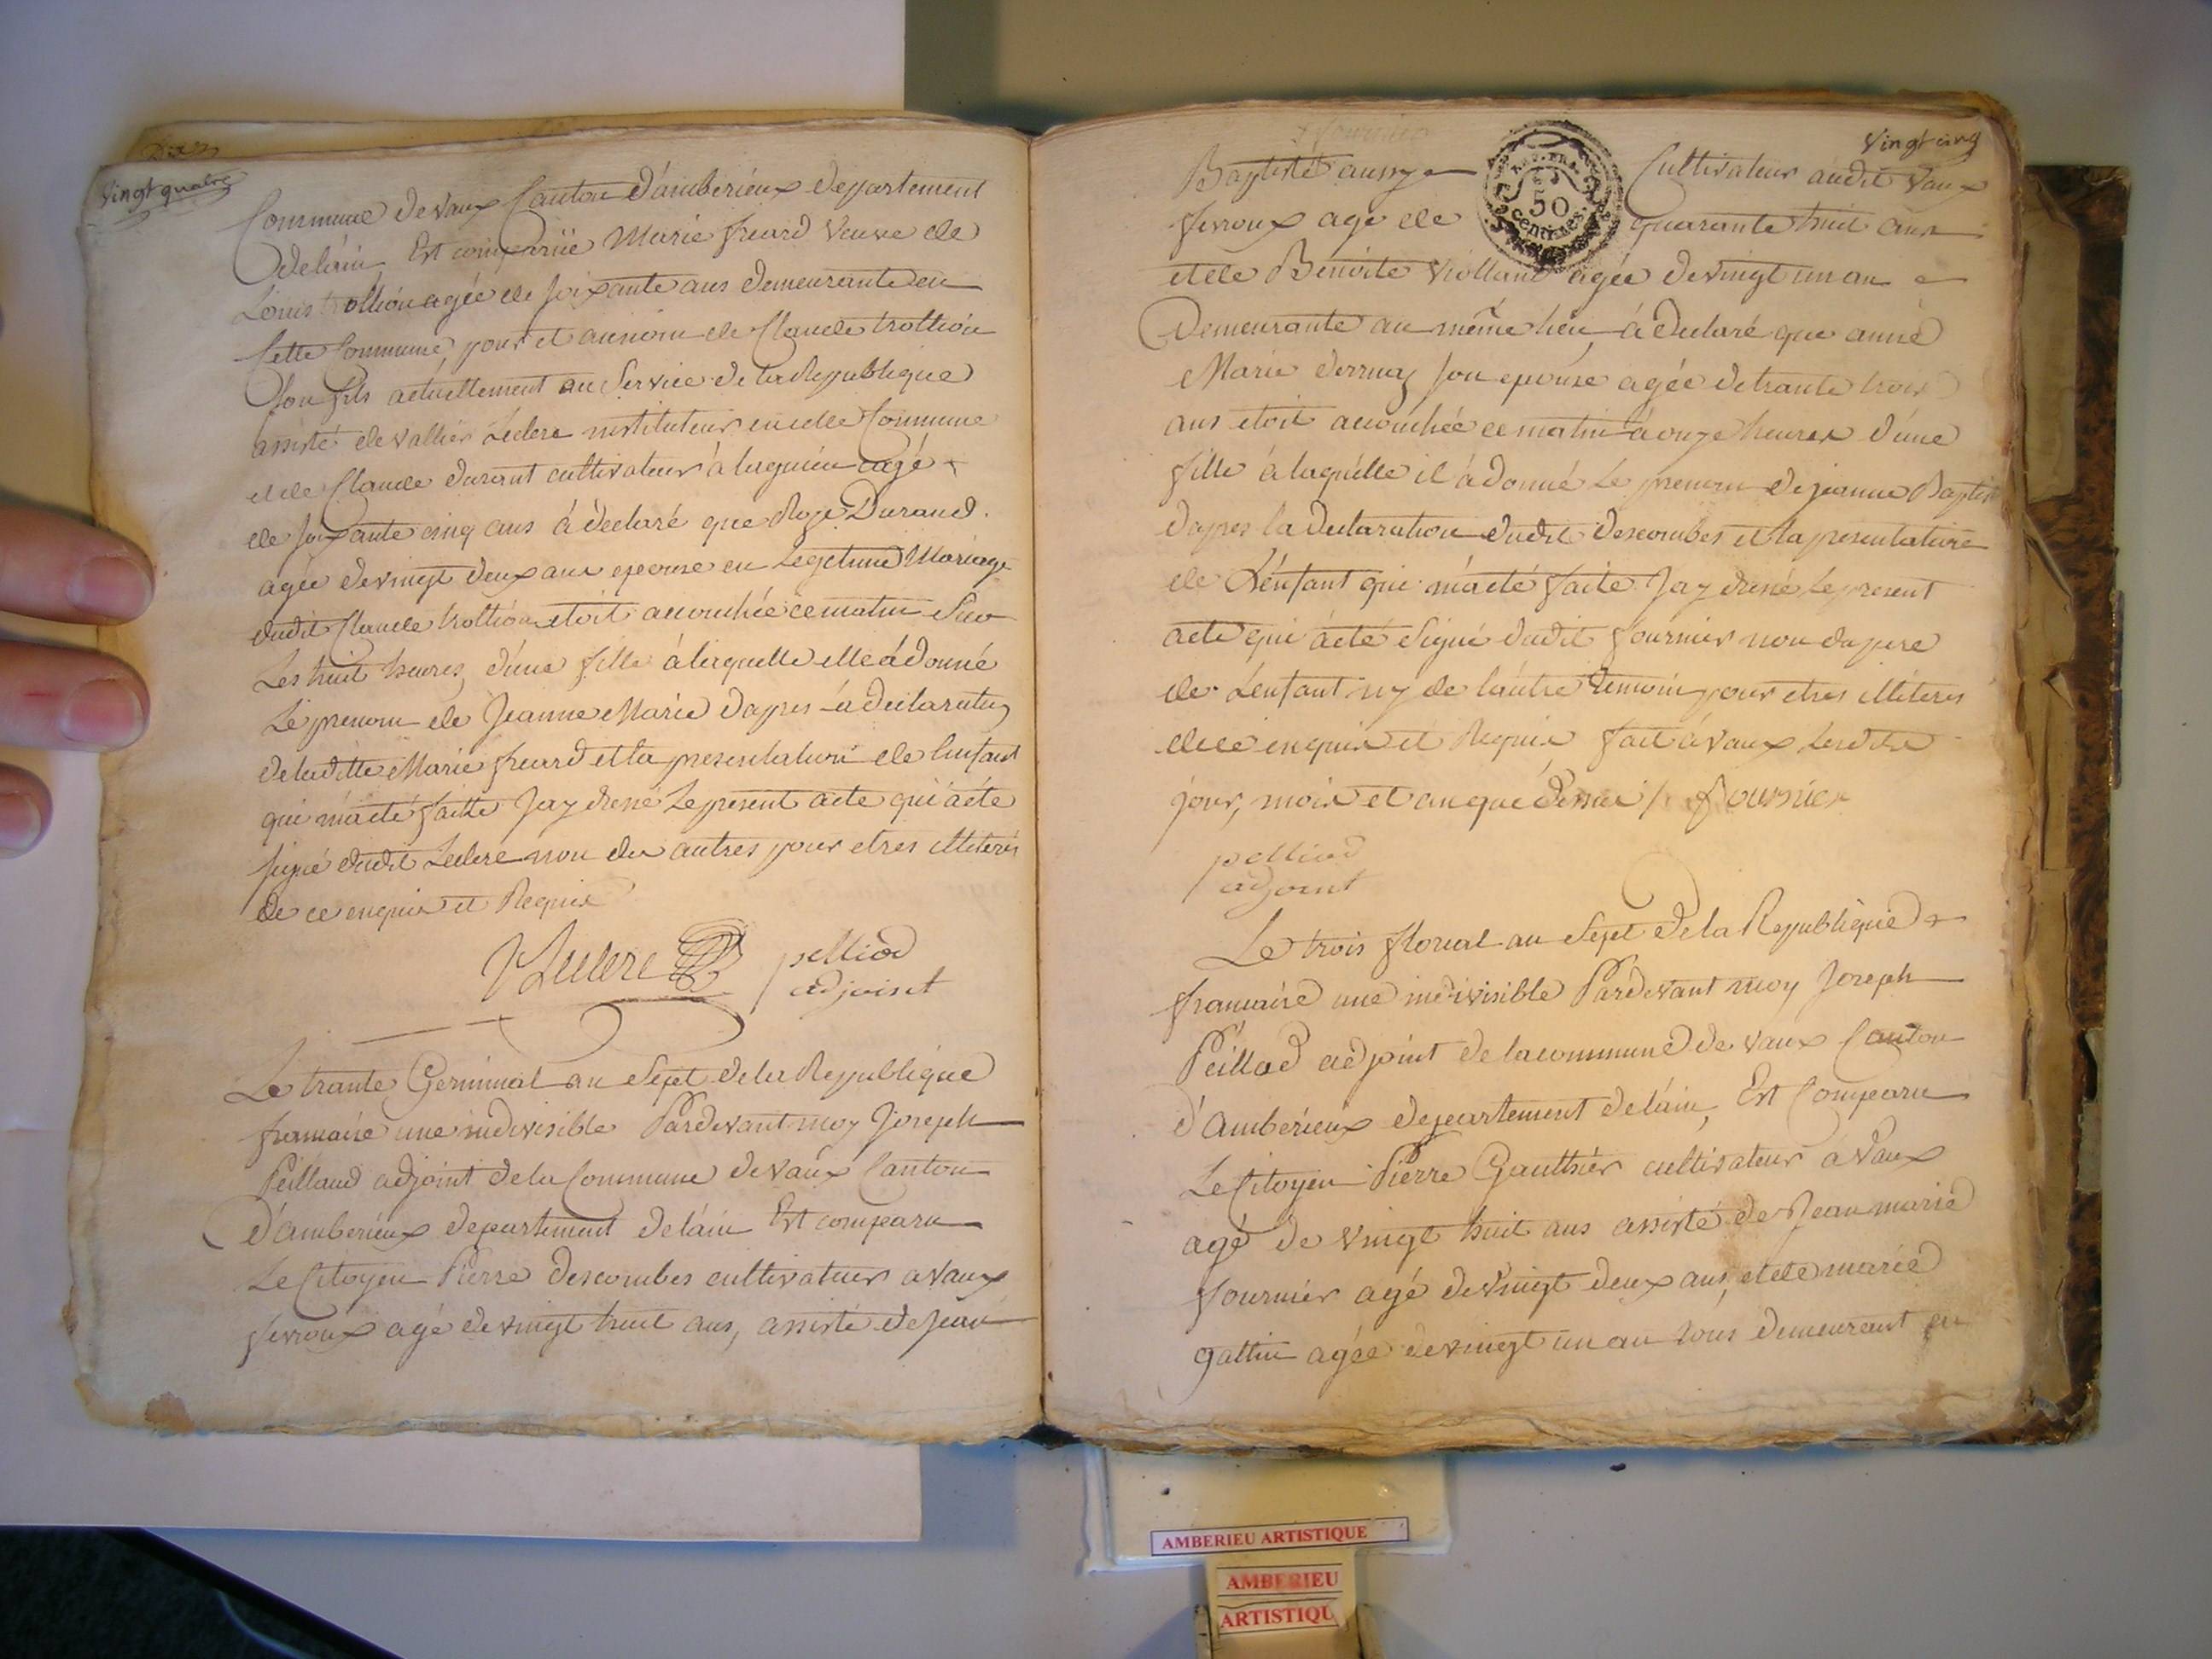 Vingt quatre
Commune de vaux Canton d'amberieux departement
delain Est comparüe Marie freard veuve de
Louis trollion agée de soixante ans demeurante en
Cette Commune, pour et au nom de Claude trollion
Son fils actuellement au Service de la Republique
assisté de vallier Leclerc instituteur en cette Commune
et de Claude durant cultivateur à lagnieu agé
de soixante cinq ans á declaré que Roze Durand.
agée de vingt deux ans epouse en Legetime Mariage
dudit Claude trollion etoit accouchée ce matin Sur
Les huit heures, d'une fille á laquelle elle á donné
Le prenom de Jeanne Marie dapres la declaration
de laditte Marie freard et la presentation de lenfant
qui m'a eté faitte Jay dressé Le present acte qui a eté
signé dudit Leclerc non des autres pour etres illiterés
de ce enquis et Requis
VLeclerc pelliod
adjoint
Le trante Germinal an Sept de la Republique
francaise une indivisible Pardevant moy Joseph
Peillaud adjoint de la Commune de vaux Canton
d'amberieux departement de lain Est comparu
Le Citoyen Pierre descombes cultivateur a vaux
fevroux agé de vingt huit ans, assisté de Jean
Vingt cinq
Baptiste aussy Cultivateur audit vaux
REP. FRA.
50
centimes.
fevroux agé de quarante huit ans
et de Benoite violland agée de vingt un an
Demeurante au même lieu, á declaré que anne
Marie son epouse agée de trante trois
ans etoit accouchée ce matin á onze heures d'une
fille á laquelle il á donné Le prenom de jeanne Baptiste
dapres la declaration dudit descombes et la presentation
de L'enfant qui m'a eté faite Jay dressé le present
acte qui á eté Signé dudit fournier non du pere
de Lenfant ny de l'autre temoin pour etres illiteres
de ce enquis et Requis fait á vaux lesdits
jour, mois et an que dessus fournier
pelliod
adjoint
Le trois floreal an Sept de la Republique
francaise une indivisible Pardevant moy Joseph
Peillod adjoint de la commune de vaux Canton
d'Amberieux departement de lain, Est Comparu
Le Citoyen Pierre Gauthier cultivateur a Vaux
agé de vingt huit ans assisté de Jean marie
fournier agé de vingt deux ans, et de marie
gallin agée de vingt un an tous demeurant en
AMBERIEU ARTISTIQUE
AMBERIEU
ARTISTIQU